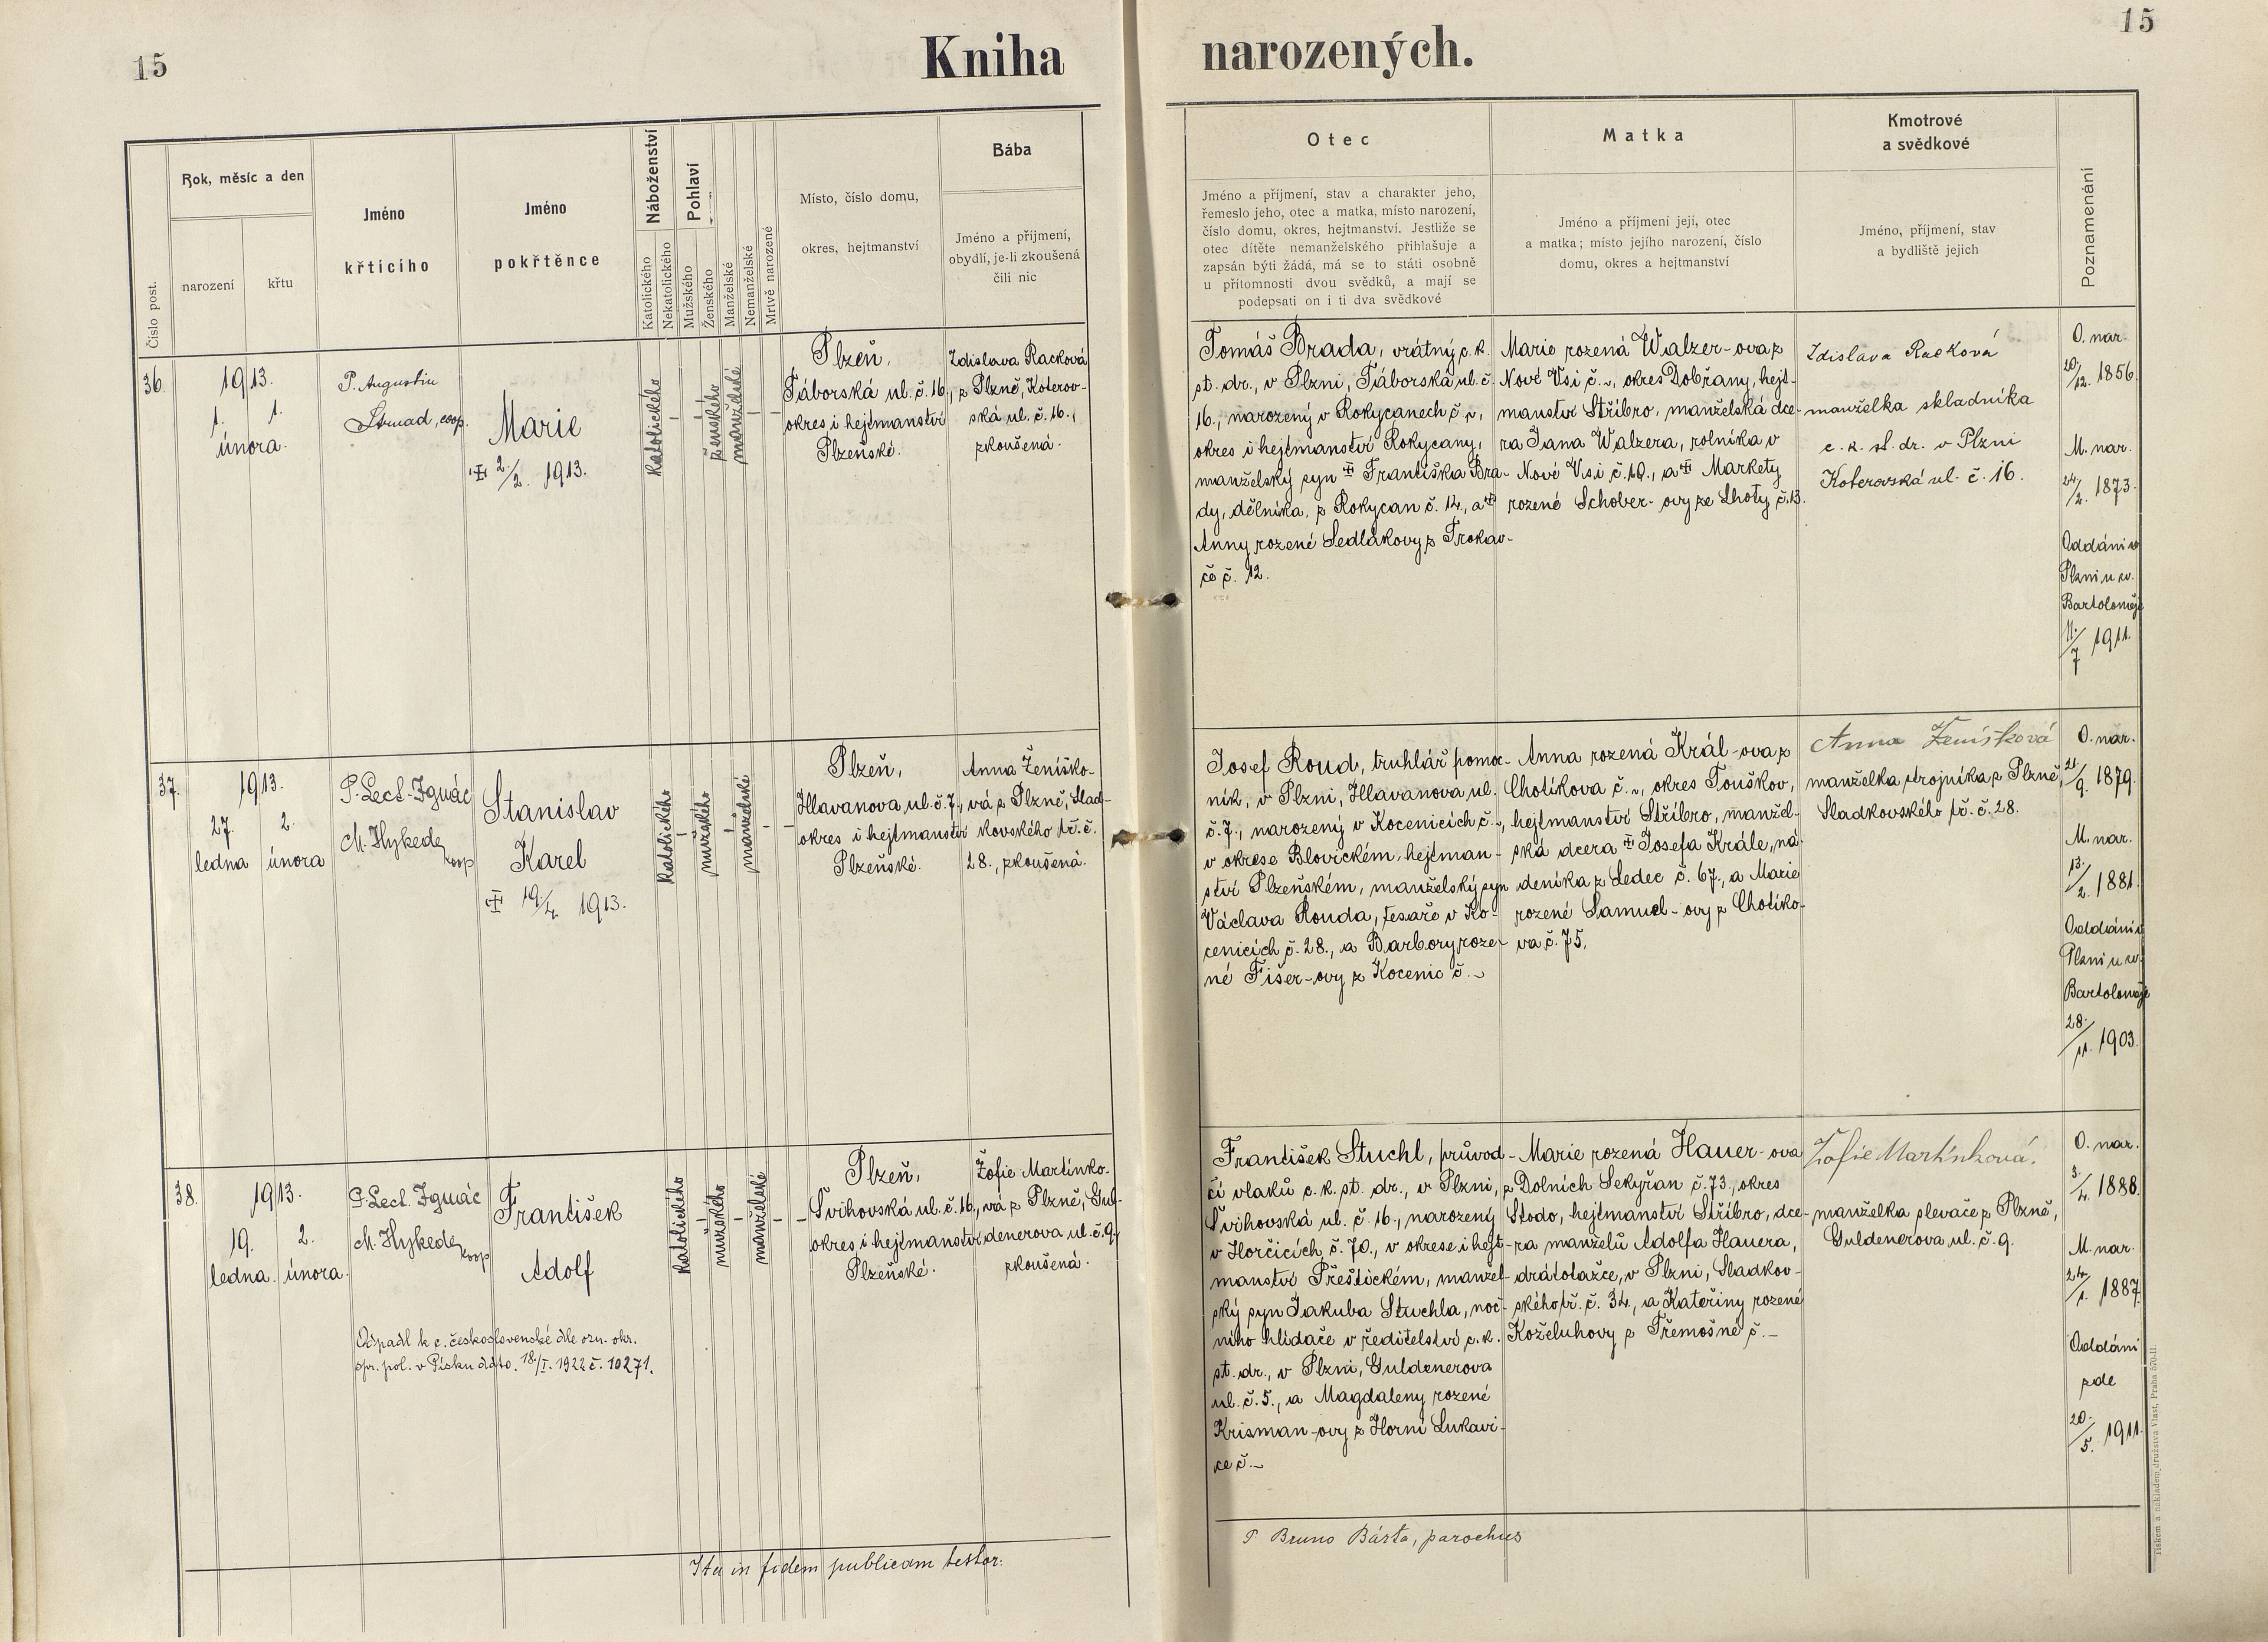 15
Kniha
narozených.
15
Číslo post.
Rok, měsíc a den
narození
křtu
Jméno
křtícího
Jméno
pokřtěnce
Náboženství
Katolického
Nekatolického
Pohlaví
Mužského
Ženského
Manželské
Nemanželské
Mrtvě narozené
Místo, číslo domu,
okres, hejtmanství
Bába
Jméno a příjmení,
obydlí, je-li zkoušená
čili nic
Otec
Jméno a příjmení, stav a charakter jeho,
řemeslo jeho, otec a matka, místo narození,
číslo domu, okres, hejtmanství. Jestliže se
otec dítěte nemanželského přihlašuje a
zapsán býti žádá, má se to státi osobně
u přítomnosti dvou svědků, a mají se
podepsati on i ti dva svědkové
Matka
Jméno a příjmení její, otec
a matka; místo jejího narození, číslo
domu, okres a hejtmanství
Kmotrové
a svědkové
Jméno, příjmení, stav
a bydliště jejich
Poznamenání
36.
1913.
1. 1.
února.
P. Augustin
Strnad, coop.
Marie
2./2. 1913.
katolického
ženského
manželské
Plzeň,
Táborská ul. č. 16.,
okres i hejtmanství
Plzeňské.
Zdislava Racková
z Plzně, Koterov-
ská ul. č. 16.,
zkoušená.
Tomáš Brada, vrátný c. k.
st. dr., v Plzni, Táborská ul. č.
16., narozený v Rokycanech č. ~,
okres i hejtmanství Rokycany,
manželský syn Františka Bra-
dy, dělníka, z Rokycan č. 14., a
Anny rozené Sedlákovy z Trokav-
če č. 12.
Marie rozená Walzer-ova z
Nové Vsi č. ~, okres Dobřany, hejt-
manství Stříbro, manželská dce-
ra Jana Walzera, rolníka v
Nové Vsi č. 10., a Markety
rozené Schober-ovy ze Lhoty č. 13.
Zdislava Racková
manželka skladníka
c. k. st. dr. v Plzni
Koterovská ul. č. 16.
O. nar.
20/12. 1856.
M. nar.
24/2. 1873.
Oddáni v
Plzni u sv.
Bartoloměje
11./7 1911.
37.
1913.
27. 2.
ledna února
P. Lect. Ignác
M. Hykede
koop
Stanislav
Karel
19./4. 1913.
katolického
mužského
manželské
Plzeň,
Hlavanova ul. č. 7.,
okres i hejtmanství
Plzeňské.
Anna Ženíško-
vá z Plzně, Slad-
kovského tř. č.
28., zkoušená.
Josef Roud, truhlář pomoc-
ník, v Plzni, Hlavanova ul.
č. 7., narozený v Kocenicích č. ~,
v okrese Blovickém, hejtman-
ství Plzeňském, manželský syn
Václava Rouda, tesaře v Ko-
cenicích č. 28., a Barbory roze-
né Fišer-ovy z Kocenic č. ~
Anna rozená Král-ova z
Chotíkova č. ~, okres Touškov,
hejtmanství Stříbro, manžel-
ská dcera Josefa Krále, ná-
deníka z Ledec č. 67., a Marie
rozené Samuel-ovy z Chotíko-
va č. 75.
Anna Ženíšková
manželka strojníka z Plzně,
Sladkovského tř. č. 28.
O. nar.
21/9. 1879.
M. nar.
13./2. 1881.
Oddáni v
Plzni u sv.
Bartoloměje
28./11. 1903.
38.
1913.
19. 2.
ledna. února.
P. Lect. Ignác
M. Hykede
koop
František
Adolf
Odpadl k c. československé dle ozn. okr.
spr. pol. v Písku ddto. 18./I. 1922 č. 10271.
katolického
mužského
manželské
Plzeň,
Švihovská ul. č. 16.,
okres i hejtmanství
Plzeňské.
Žofie Martínko-
vá z Plzně, Gul-
denerova ul. č. 9.,
zkoušená.
František Stuchl, průvod-
čí vlaků c. k. st. dr., v Plzni,
Švihovská ul. č. 16., narozený
v Horčicích č. 70., v okrese i hejt-
manství Přeštickém, manžel-
ský syn Jakuba Stuchla, noč-
ního hlídače v ředitelství c. k.
st. dr., v Plzni, Guldenerova
ul. č. 5., a Magdaleny rozené
Krisman-ovy z Horní Lukavi-
ce č. ~
Marie rozená Hauer-ova
z Dolních Sekyřan č. 73., okres
Stodo, hejtmanství Stříbro, dce-
ra manželů Adolfa Hauera,
drátotažce, v Plzni, Sladkov-
ského tř. č. 34., a Kateřiny rozené
Koželuhovy z Třemošné č. ~
Žofie Martínková.
manželka slevače z Plzně,
Guldenerova ul. č. 9.
O. nar.
3./4. 1888.
M. nar.
24/1. 1887.
Oddáni
zde
20./5. 1911.
Ita in fidem publicam testor:
P Bruno Bárta, parochus
Tiskem a nakladem družstva Vlast, Praha 570-II.